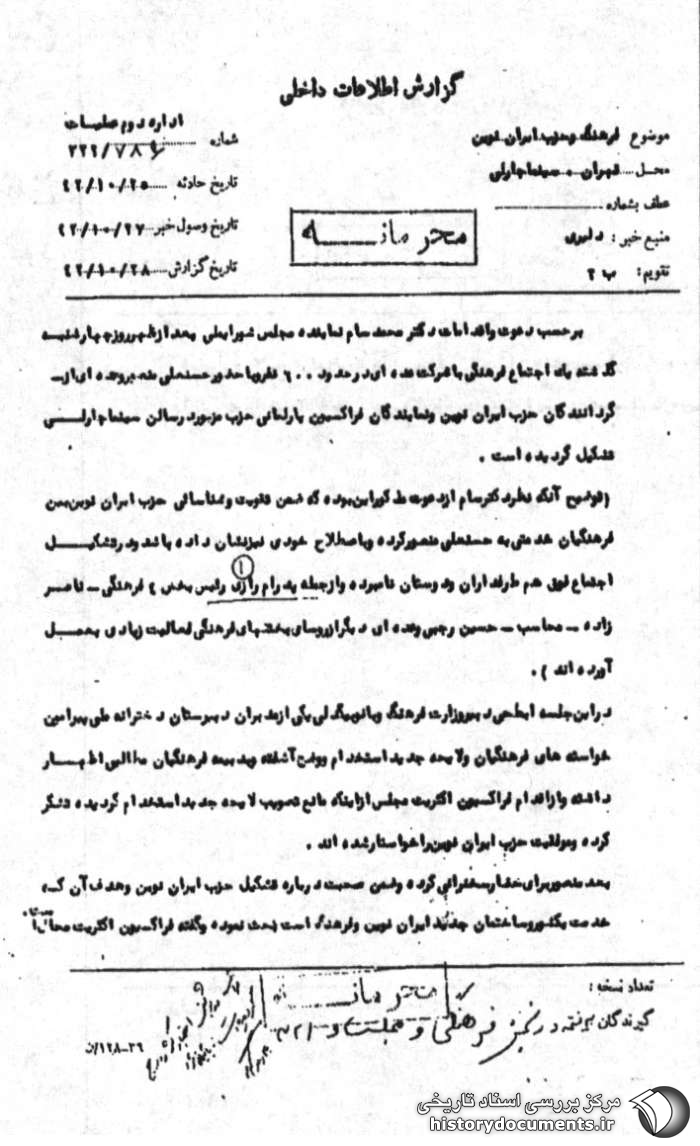 گزارش اطلاعات داخلی
موضوع فرهنگ و حزب ایران نوین
محل تهران - سینما چارلی
عطف بشماره
منبع خبر: دلیری
تقویم: ب ۲
محرمانه
اداره دوم عملیات
شماره ۳۲۲/۷۸۶
تاریخ حادثه ۴۲/۱۰/۲۵
تاریخ وصول خبر ۴۲/۱۰/۲۷
تاریخ گزارش ۴۲/۱۰/۲۸
برحسب دعوت واقدامات دکتر محمد سام نماینده مجلس شورایملی بعد از ظهر روز چهارشنبه
گذشته یک اجتماع فرهنگی با شرکت عده ای در حدود ۶۰۰ نفر و با حضور حسنعلی منصور و عده ای از
گردانندگان حزب ایران نوین و نمایندگان فراکسیون پارلمانی حزب مزبور در سالن سینما چارلی
تشکیل گردیده است .
(توضیح آنکه نظر دکتر سام از دعوت مذکور این بوده که ضمن تقویت و شناسائی حزب ایران نوین بین
فرهنگیان خدمتی به حسنعلی منصور کرده و باصطلاح خودی نیز نشان داده باشد و در تشکیل
اجتماع فوق هم طرفداران و دوستان نامبرده و از جمله پدرام رازی (۱) رئیس بخش ۶ فرهنگی - ناصر
زاده - محاسب - حسین رجبی و عده ای دیگر از روسای بخشهای فرهنگی فعالیت زیادی بعمل
آورده اند ) .
در این جلسه ابطحی دبیر وزارت فرهنگ و بانو بیگدلی یکی از مدیران دبیرستان دخترانه ملی پیرامین
خواسته های فرهنگیان و لایحه جدید استخدام و وضع آشفته و بیمه فرهنگیان مطالبی اظهار
داشته و از اقدام فراکسیون اکثریت مجلس از اینکه مانع تصویب لایحه جدید استخدام گردیده تشکر
کرده و موفقیت حزب ایران نوین را خواستار شده اند .
بعد منصور برای حضار سخنرانی کرده و ضمن صحبت درباره تشکیل حزب ایران نوین و هدف آن که
خدمت بکشور و ساختمان جدید ایران نوین و فرهنگ است بحث نموده و گفته فراکسیون اکثریت مجلس
تعداد نسخه :
گیرندگان
محرمانه
۱۲۸-۳۶/ن
مرکز بررسی اسناد تاریخی
historydocuments.ir